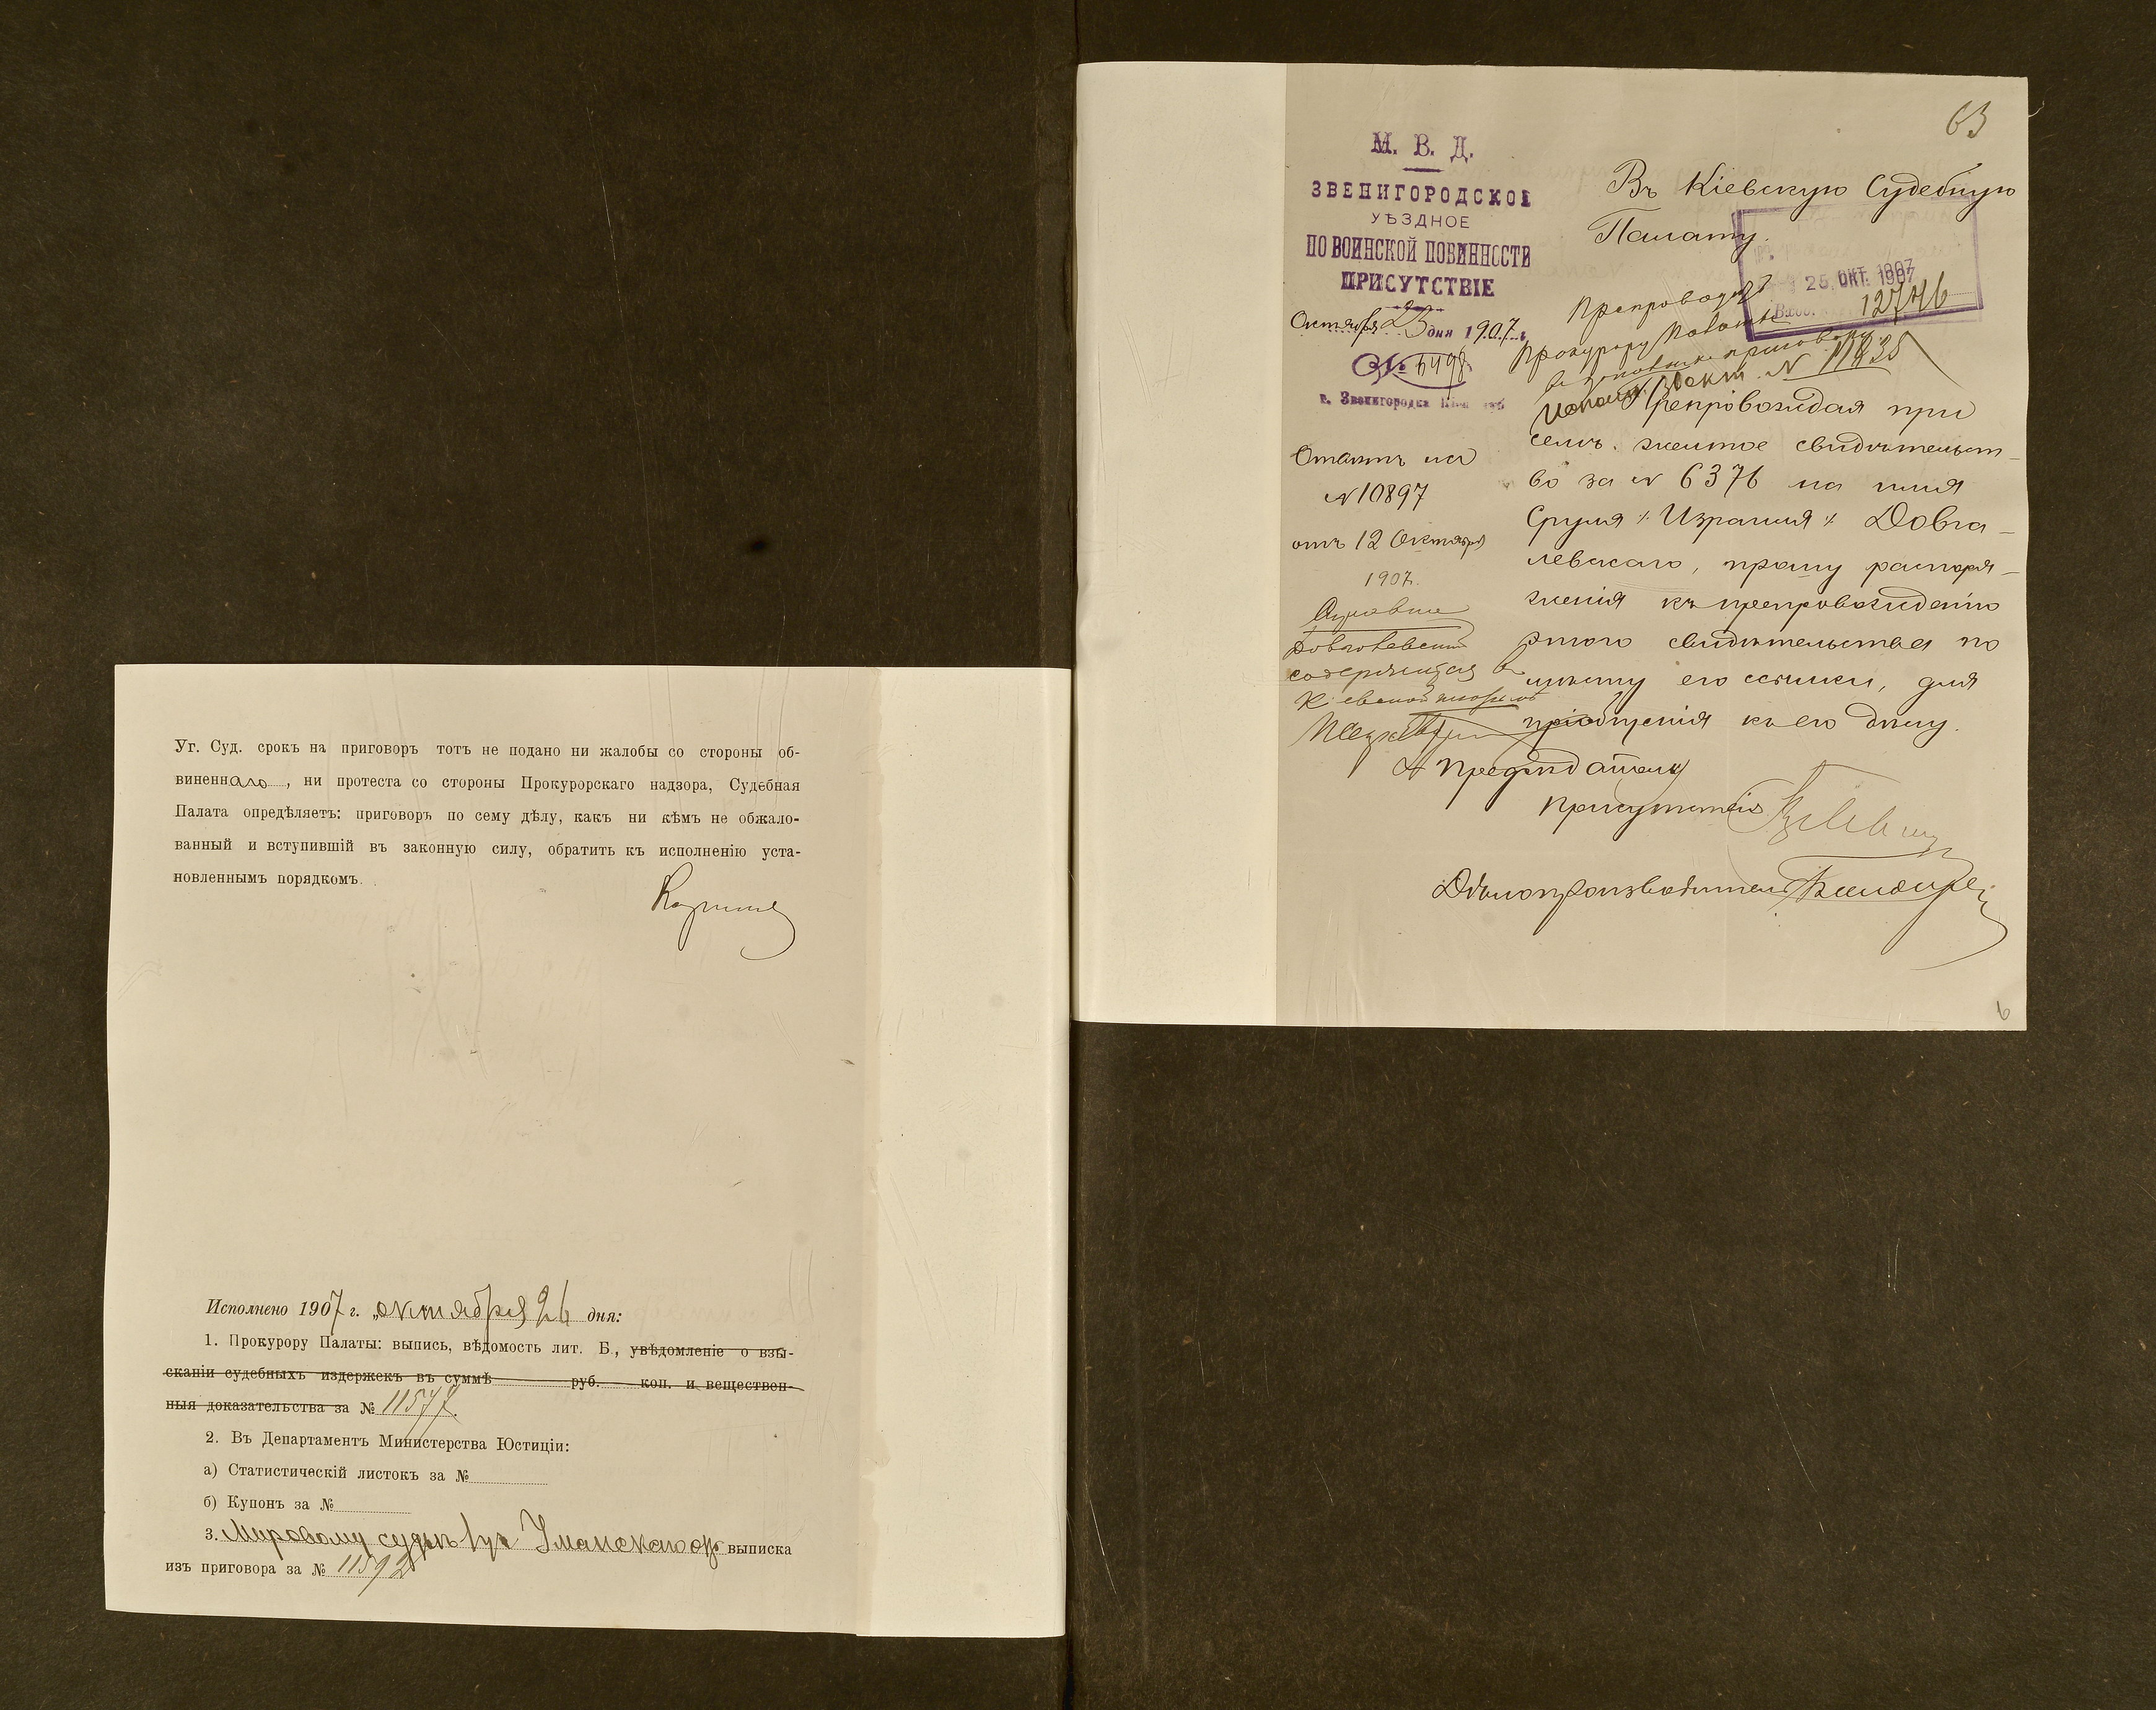 Уг. Суд. срокъ на приговоръ тотъ не подано ни жалобы со стороны об-
виненнаго, ни протеста со стороны Прокурорскаго надзора, Судебная
Палата опредѣляетъ: приговоръ по сему дѣлу, какъ ни кѣмъ не обжало-
ванный и вступившій въ законную силу, обратить къ исполненію уста-
новленнымъ порядкомъ.
Исполнено 1907 г. „октября 26 дня:
1. Прокурору Палаты: выпись, вѣдомость лит. Б., увѣдомленіе о взы-
сканіи судебныхъ издержекъ въ суммѣ руб. коп. и веществен-
ныя доказательства за № 11577.
2. Въ Департаментъ Министерства Юстиціи:
а) Статистическій листокъ за №
б) Купонъ за №
3. Мировому судьѣ 1 уч Уманскаго окр выписка
изъ приговора за № 11592
63
М. В. Д.
ЗВЕНИГОРОДСКОЕ
УѢЗДНОЕ
ПО ВОИНСКОЙ ПОВИННОСТИ
ПРИСУТСТВІЕ
Октября 23 дня 1907 г.
№ 5498
г. Звенигородка Кіев губ
Отвѣтъ на
№ 10897
отъ 12 Октября
1907.
Довгалевскій
содержится въ
Кіевской тюрьмѣ
Въ Кіевскую Судебную
Палату.
25 ОКТ. 1907
Вход. 12746
Препровод
Прокурору Палаты
приговору
№ 11835
Препровождая при
семъ желтое свидѣтельст-
во за № 6376 на имя
Сруля ⁒ Израиля ⁒ Довга-
левскаго, прошу распоря-
женія къ препровожденію
этого свидѣтельства по
мѣсту его ссылки, для
пріобщенія къ его дѣлу.
Предсѣдатель
Присутствія
Дѣлопроизводитель
6